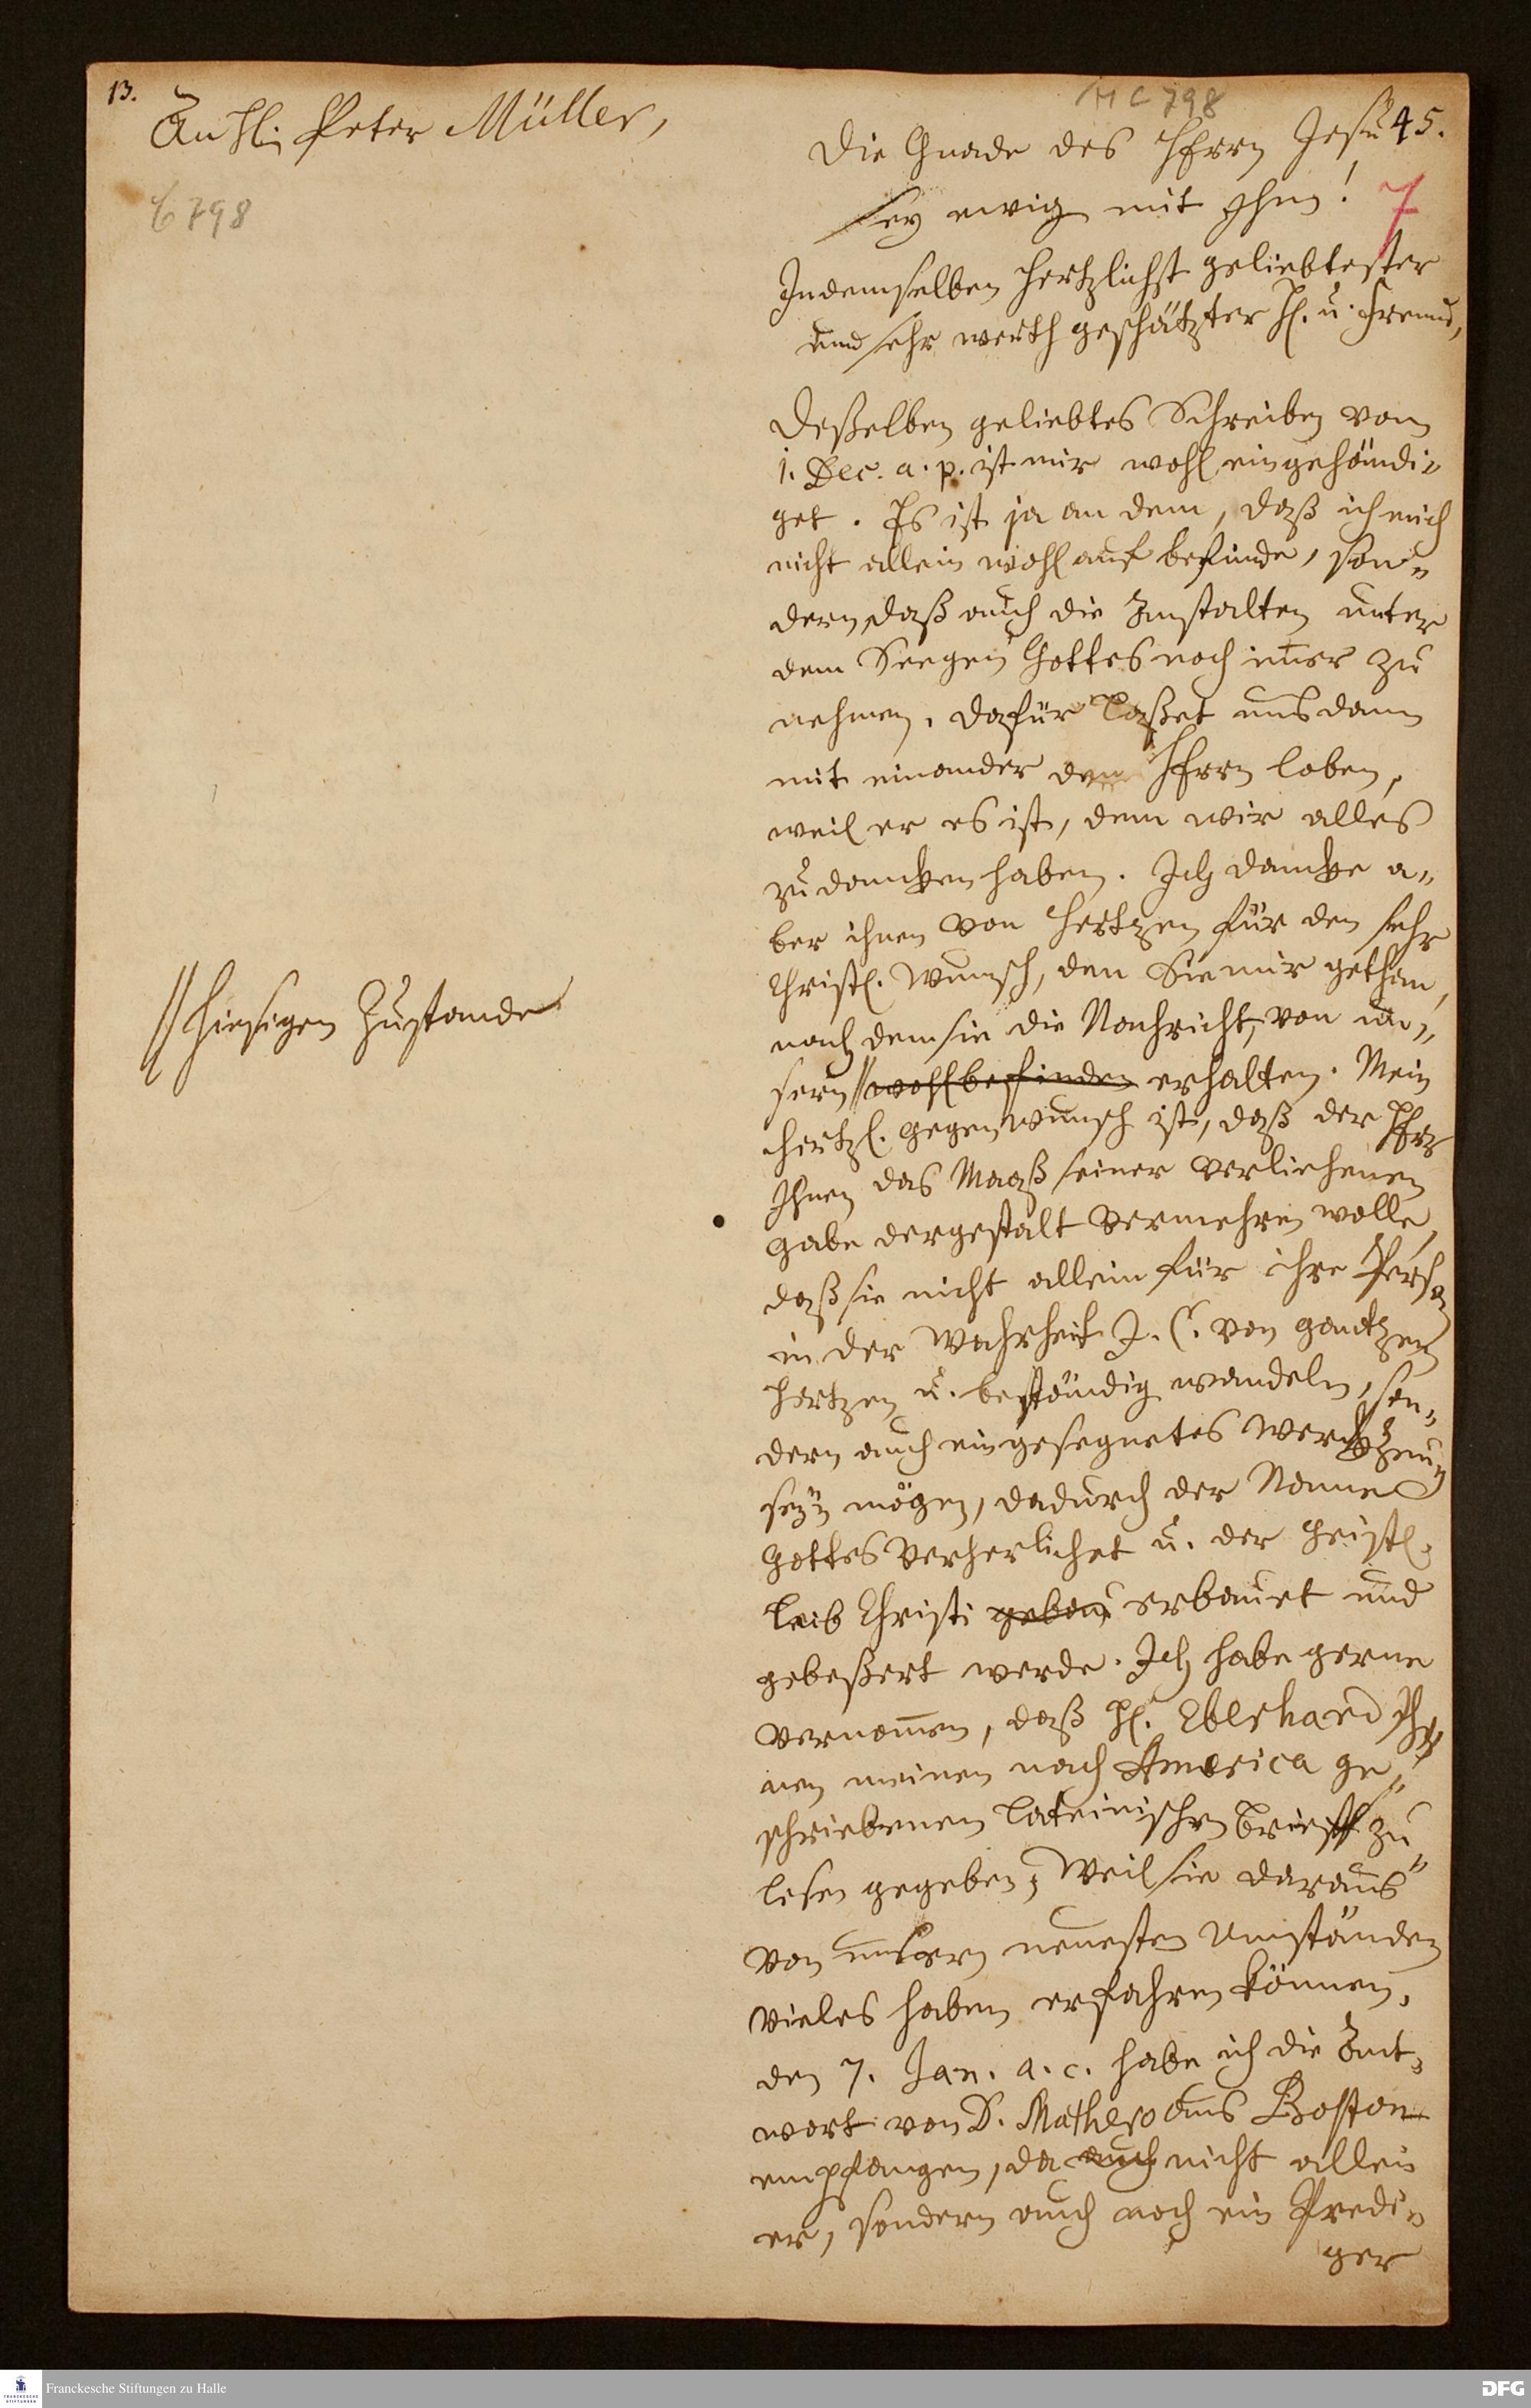 13.
An H. Peter Müller,
C 798
HC 798
45.
7
Die Gnade des HErrn Jesu
sey ewig mit Ihm!
In demselben hertzlichst geliebtester
und sehr werth geschätzter H. u. Freund,
Deßelben geliebtes Schreiben vom
1. Dec. a. p. ist mir wohl eingehändi-
get. Es ist ja an dem, daß ich mich
nicht allein wohl auf befinde, son-
dern, daß auch die Anstalten unter
dem Seegen Gottes noch im̄er zu
nehmen. Dafür laßet uns dann
mit einander den HErrn loben,
weil er es ist, dem wir alles
zu dancken haben. Ich dancke a-
ber ihnen von Hertzen für den sehr
Christl. Wunsch, den Sie mir gethan,
nach dem sie die Nachricht, von un-
sern // wohlbefinden erhalten. Mein
hertzl. gegenwunsch ist, daß der HErr
//hiesigen Zustande
Ihnen das Maaß seiner verliehenen
Gabe dergestalt vermehren wolle,
daß sie nicht allein für ihre Person
in der Wahrheit J. C. von gantzem
Hertzen u. beständig wandeln, son-
dern auch ein gesegnetes Werckzeug
seyn mögen, dadurch der Name
Gottes verherlichet u. der Geistl.
Leib Christi gebau erbauet und
gebeßert werde. Ich habe gerne
vernom̄en, daß H. Eberhard Ih-
nen meinen nach America ge-
schriebenen Lateinischen Brieff zu
lesen gegeben, weil sie daraus
von unsern neuesten Umständen
vieles haben erfahren können.
den 7. Jan. a. c. habe ich die Ant-
wort von D. Mathero aus Boston
empfangen, da auch nicht allein
er, sondern auch noch ein Predi-
ger
Franckesche Stiftungen zu Halle
DFG